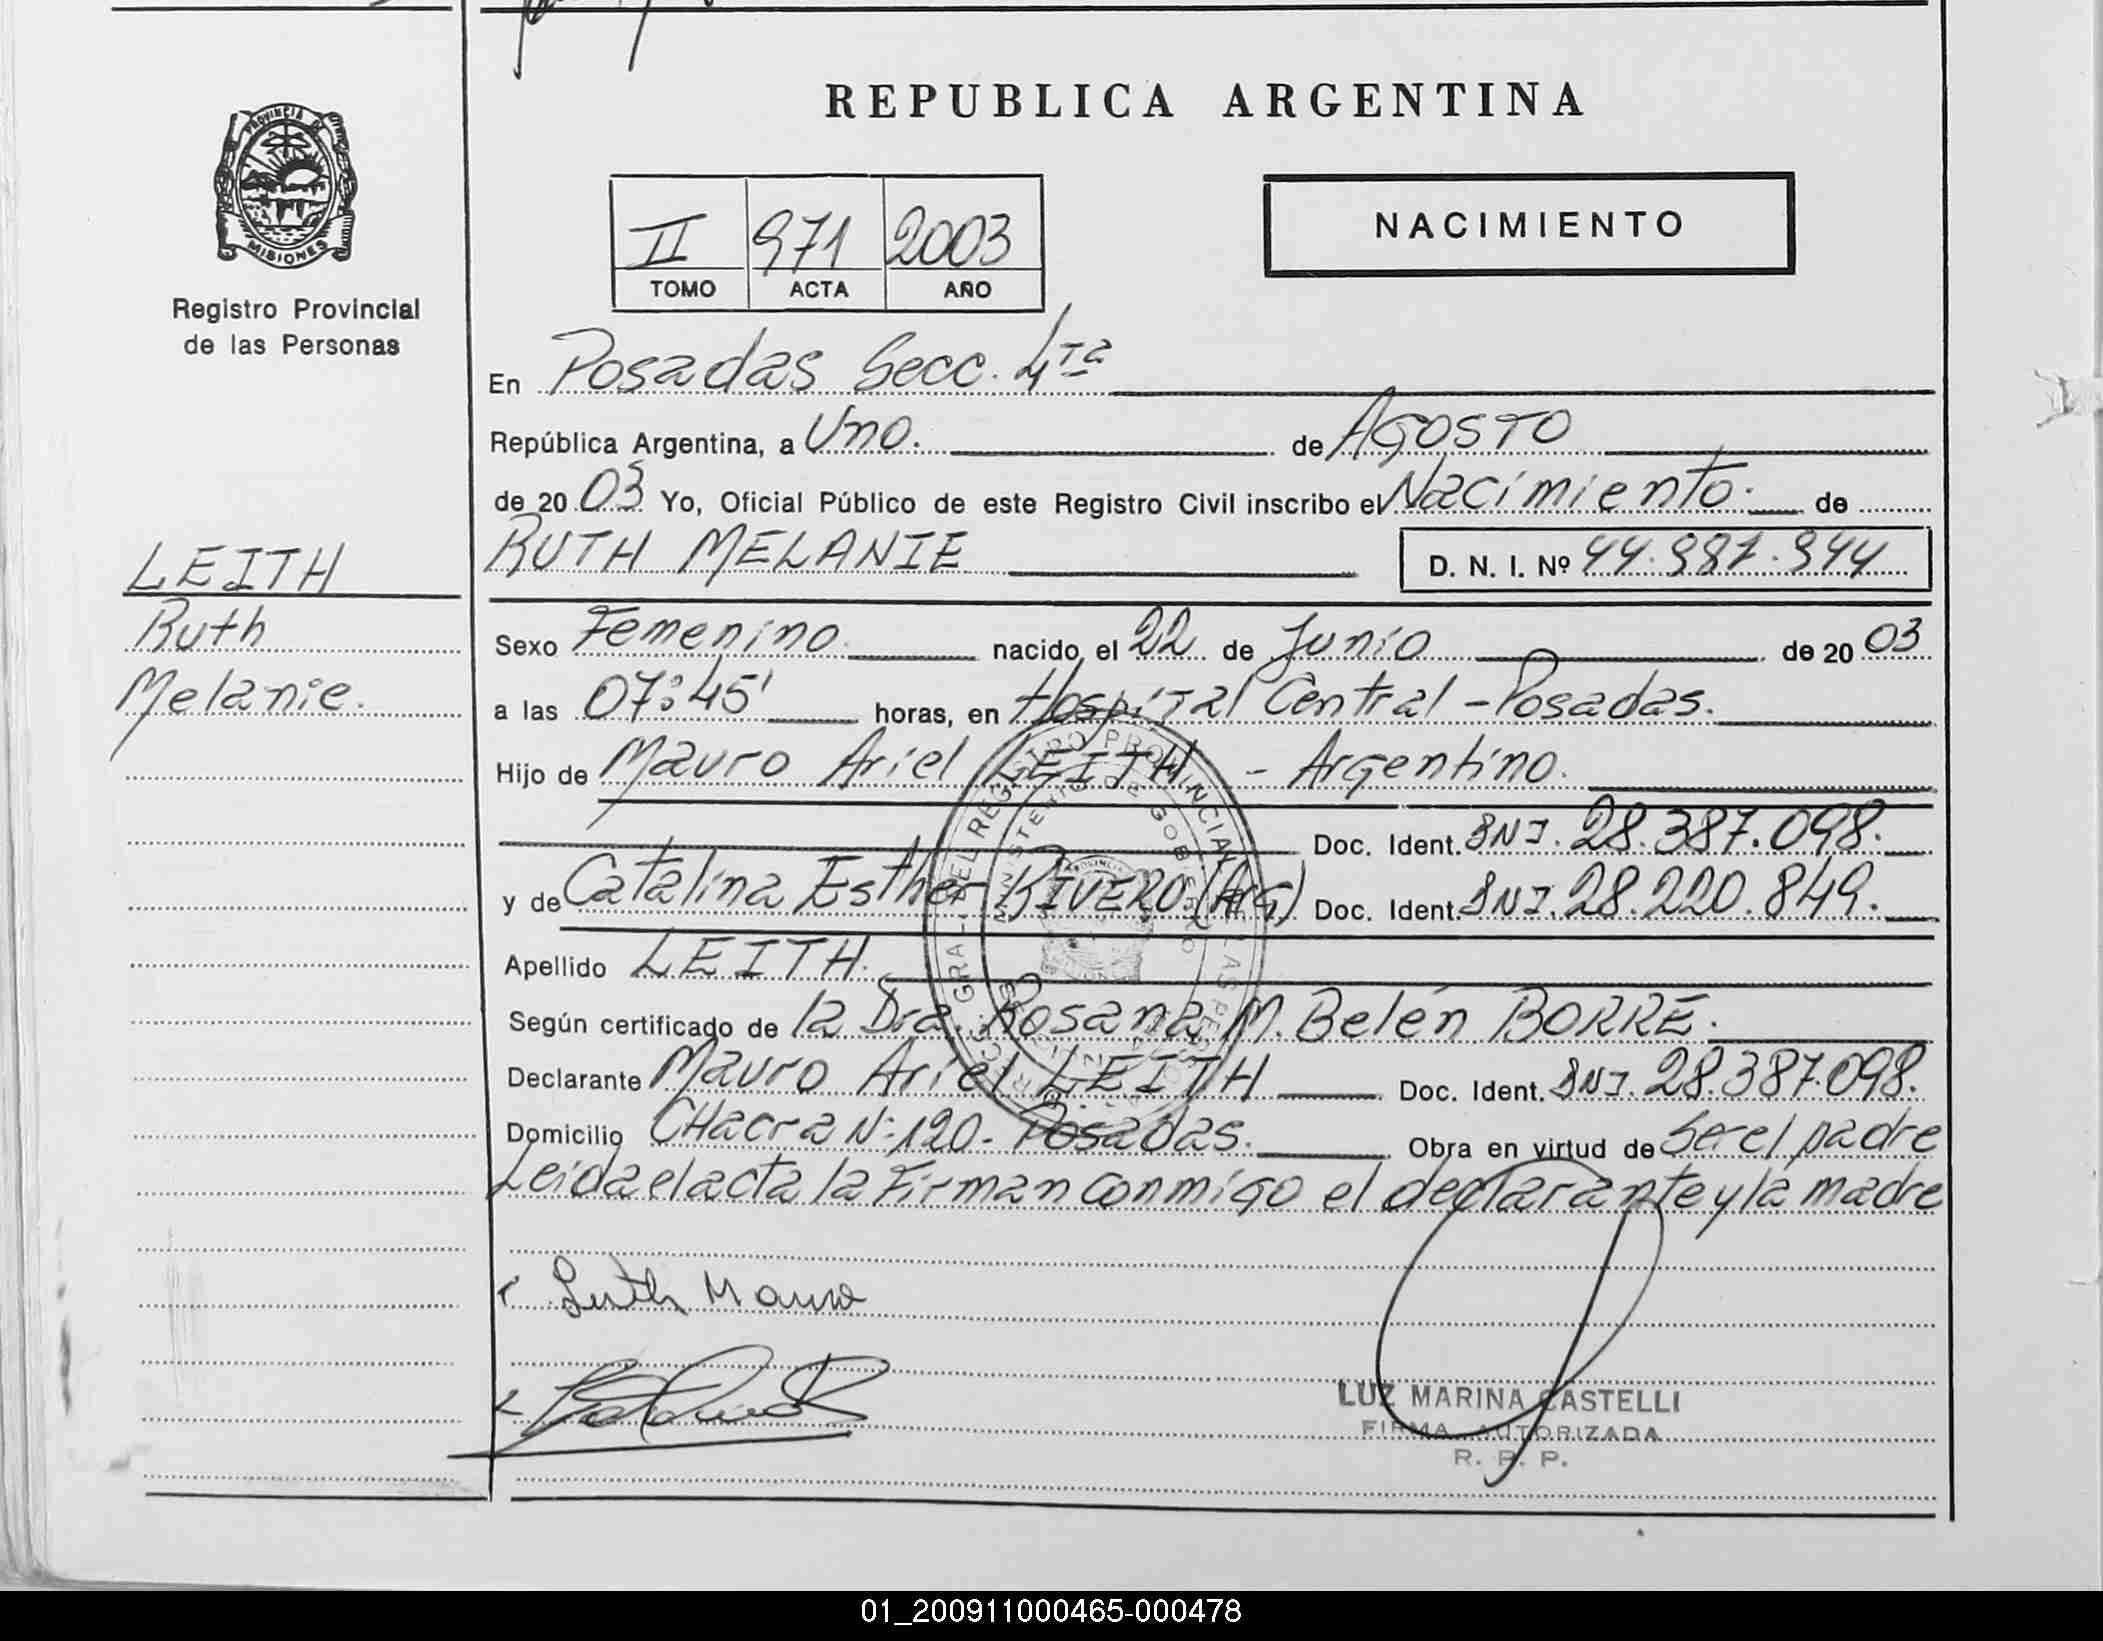 REPUBLICA ARGENTINA
PROVINCIA DE
MISIONES
Registro Provincial
de las Personas
II 971 2003
TOMO ACTA AÑO
NACIMIENTO
En Posadas Secc. 4ta
República Argentina, a Uno. de AGOSTO
de 20 03 Yo, Oficial Público de este Registro Civil inscribo el Nacimiento. de
RUTH MELANIE D. N. I. Nº
LEITH
Ruth
Melanie.
Sexo Femenino. nacido el 22 de Junio de 20 03
a las 07:45' horas, en Hospital Central - Posadas.
Hijo de Mauro Ariel LEITH - Argentino.
Doc. Ident. DNI. 28.387.098.
y de Catalina Esther RIVERO (Arg) Doc. Ident. DNI. 28.220.849.
Apellido LEITH.
Según certificado de la Dra. Rosana M. Belén BORRÉ.
Declarante Mauro Ariel LEITH Doc. Ident. DNI. 28.387.098.
Domicilio CHacra Nº 120 - Posadas. Obra en virtud de Ser el padre
Leida el acta la Firman conmigo el declarante y la madre
Leith Mauro
LUZ MARINA CASTELLI
FIRMA AUTORIZADA
R. P. P.
01_200911000465-000478